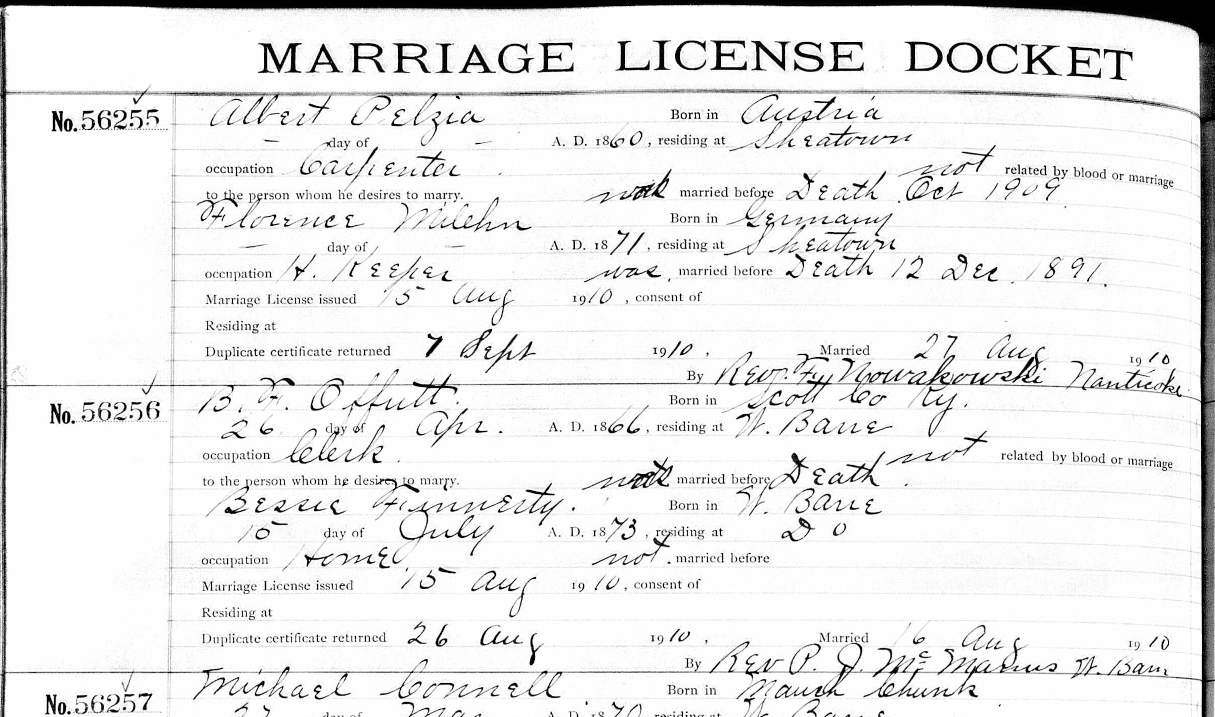 MARRIAGE LICENSE DOCKET
No. 56255 Albert Pelzia Born in Austria
— day of — A. D. 1860, residing at Sheatown
occupation Carpenter not related by blood or marriage
to the person whom he desires to marry. was married before Death Oct 1909
Florence Milehn Born in Germany
— day of — A. D. 1871, residing at Sheatown
occupation H. Keeper was married before Death 12 Dec. 1891.
Marriage License issued 15 Aug 1910, consent of
Residing at
Duplicate certificate returned 7 Sept 1910. Married 27 Aug 1910
By Rev. F. Nowakowski Nanticoke
No. 56256 B. F. Offutt. Born in Scott Co Ky.
26 day of Apr. A. D. 1866, residing at W. Barre
occupation Clerk. not related by blood or marriage
to the person whom he desires to marry. was married before Death.
Bessie Finnerty. Born in W. Barre
15 day of July A. D. 1873, residing at Do
occupation Home not. married before
Marriage License issued 15 Aug 1910, consent of
Residing at
Duplicate certificate returned 26 Aug 1910. Married 16 Aug 1910
By Rev P. J. McManus W. Barre
No. 56257 Michael Connell Born in Mauch Chunk
27 day of Mar A. D. 1870, residing at W. Barre